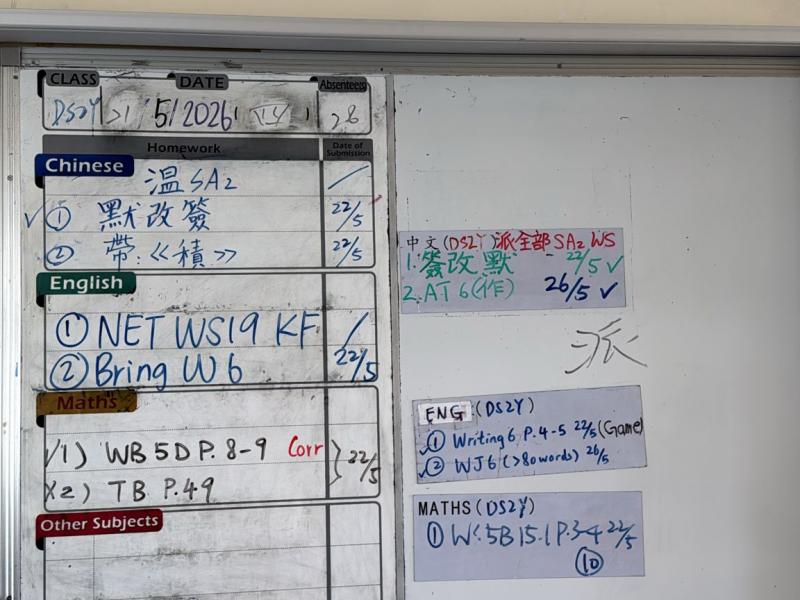 CLASS DATE Absentees
DS2Y 21/5/2026 28
Homework Date of Submission
Chinese
溫SA2 /
✓① 默改簽 22/5
② 帶:《積》 22/5
English
① NET WS19 KF /
② Bring W6 22/5
Maths
1) WB 5D P.8-9 Corr } 22/5
2) TB P.49
Other Subjects
中文(DS2Y)派全部SA2 WS
1.簽改默 - 22/5 ✓
2.AT6(作) 26/5 ✓
派
ENG (DS2Y)
① Writing6 P.4-5 22/5 (Game)
② WJ6 (>80words) 26/5
MATHS (DS2Y)
① W. 5B 15.1 P.3-4 22/5
⑩